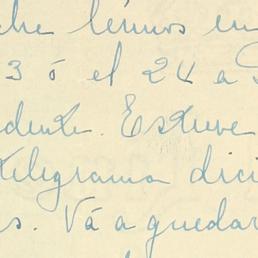 che lemos en
3 ó el 24 a
dente. Estuve
telegrama dici
s. Vá a quedar